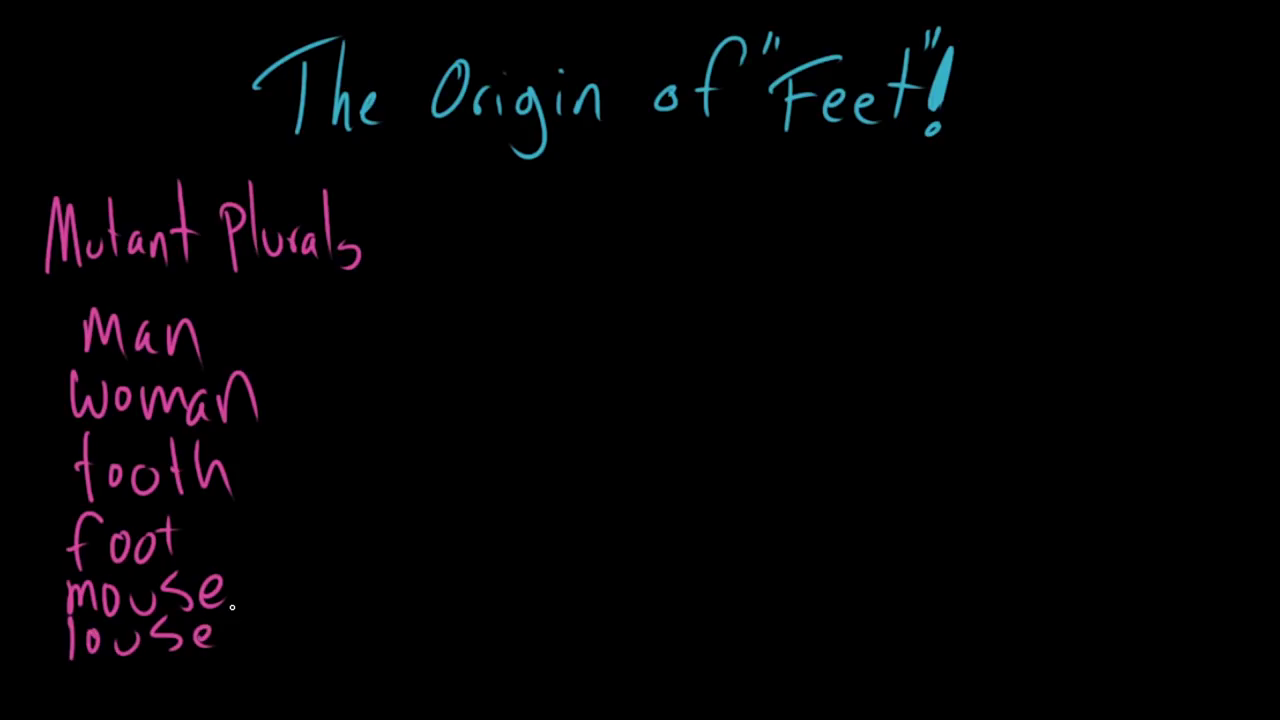 The Origin of "Feet"!
Mutant Plurals
man
woman
tooth
foot
mouse
louse